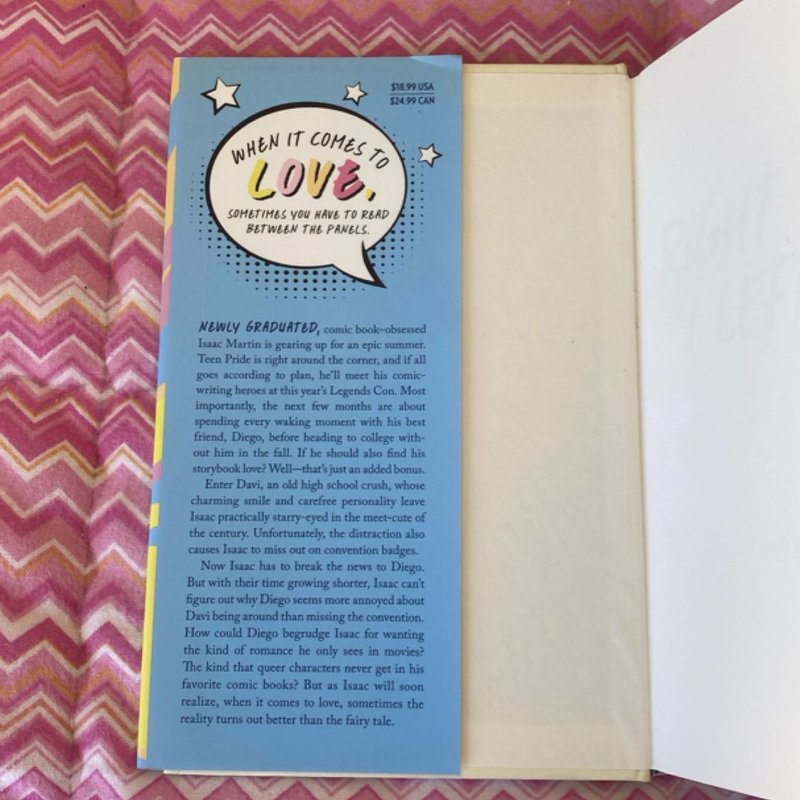 $18.99 USA
$24.99 CAN
WHEN IT COMES TO
LOVE,
SOMETIMES YOU HAVE TO READ
BETWEEN THE PANELS.
NEWLY GRADUATED, comic book–obsessed
Isaac Martin is gearing up for an epic summer.
Teen Pride is right around the corner, and if all
goes according to plan, he'll meet his comic-
writing heroes at this year's Legends Con. Most
importantly, the next few months are about
spending every waking moment with his best
friend, Diego, before heading to college with-
out him in the fall. If he should also find his
storybook love? Well—that's just an added bonus.
Enter Davi, an old high school crush, whose
charming smile and carefree personality leave
Isaac practically starry-eyed in the meet-cute of
the century. Unfortunately, the distraction also
causes Isaac to miss out on convention badges.
Now Isaac has to break the news to Diego.
But with their time growing shorter, Isaac can't
figure out why Diego seems more annoyed about
Davi being around than missing the convention.
How could Diego begrudge Isaac for wanting
the kind of romance he only sees in movies?
The kind that queer characters never get in his
favorite comic books? But as Isaac will soon
realize, when it comes to love, sometimes the
reality turns out better than the fairy tale.